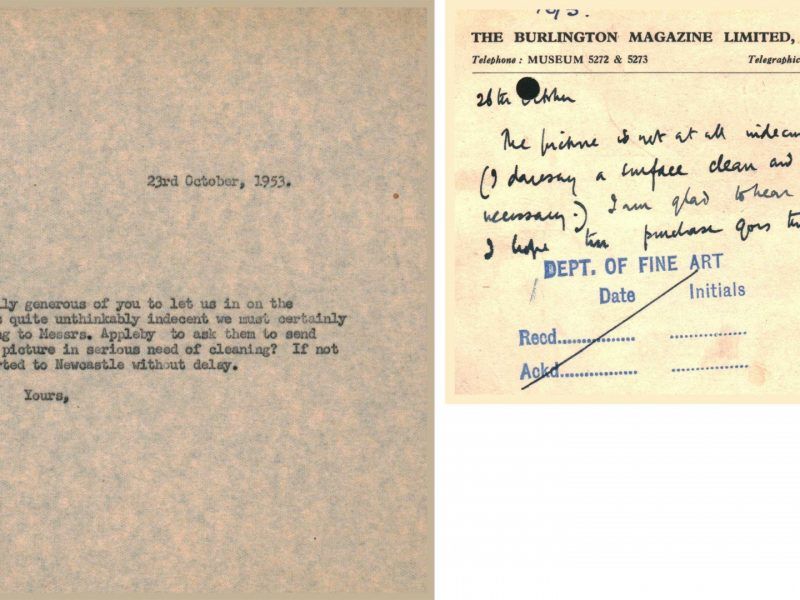 23rd October, 1953.
lly generous of you to let us in on the
quite unthinkably indecent we must certainly
ng to Messrs. Appleby to ask them to send
picture in serious need of cleaning? If not
rted to Newcastle without delay.
Yours,
THE BURLINGTON MAGAZINE LIMITED,
Telephone: MUSEUM 5272 & 5273 Telegraphic
26th October
The picture is not at all indecen
(I daresay a surface clean and
necessary.) I am glad to hear
I hope the purchase goes th
DEPT. OF FINE ART
Date Initials
Recd.
Ackd.